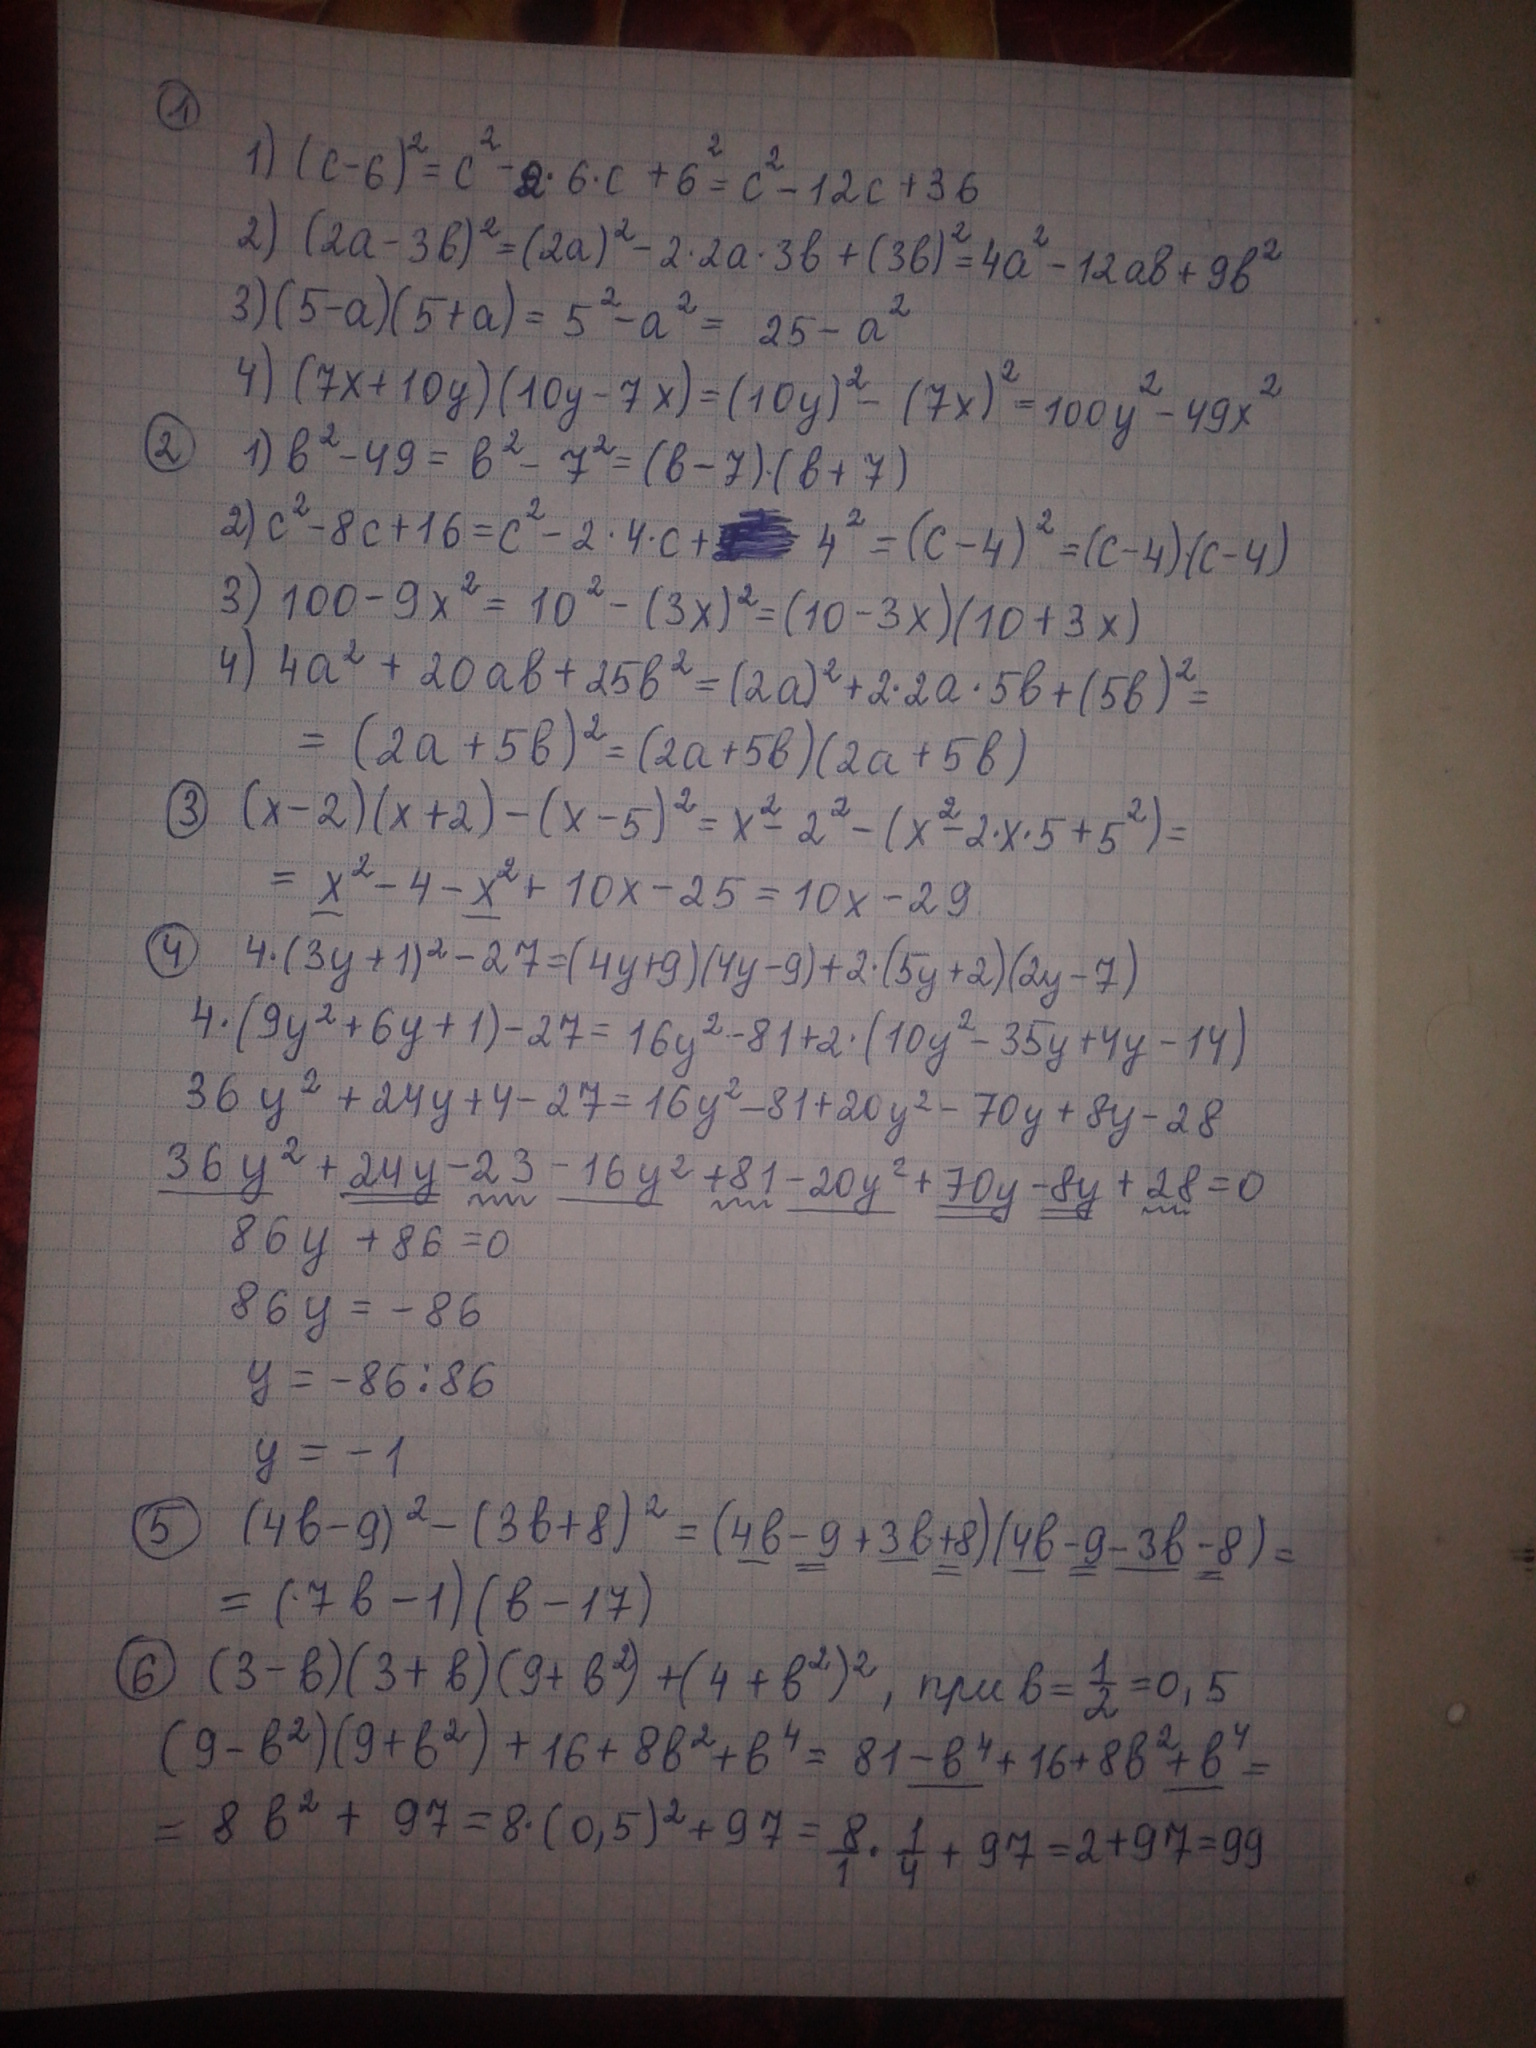 ①
1) (c-6)² = c² - 2·6·c + 6² = c² - 12c + 36
2) (2a - 3b)² = (2a)² - 2·2a·3b + (3b)² = 4a² - 12ab + 9b²
3) (5-a)(5+a) = 5² - a² = 25 - a²
4) (7x+10y)(10y-7x) = (10y)² - (7x)² = 100y² - 49x²
② 1) b² - 49 = b² - 7² = (b-7)·(b+7)
2) c² - 8c + 16 = c² - 2·4·c + 4² = (c-4)² = (c-4)·(c-4)
3) 100 - 9x² = 10² - (3x)² = (10-3x)(10+3x)
4) 4a² + 20ab + 25b² = (2a)² + 2·2a·5b + (5b)² =
= (2a+5b)² = (2a+5b)(2a+5b)
③ (x-2)(x+2) - (x-5)² = x² - 2² - (x² - 2·x·5 + 5²) =
= x² - 4 - x² + 10x - 25 = 10x - 29
④ 4·(3y+1)² - 27 = (4y+9)(4y-9) + 2·(5y+2)(2y-7)
4·(9y² + 6y + 1) - 27 = 16y² - 81 + 2·(10y² - 35y + 4y - 14)
36y² + 24y + 4 - 27 = 16y² - 81 + 20y² - 70y + 8y - 28
36y² + 24y - 23 - 16y² + 81 - 20y² + 70y - 8y + 28 = 0
86y + 86 = 0
86y = -86
y = -86:86
y = -1
⑤ (4b-9)² - (3b+8)² = (4b-9+3b+8)(4b-9-3b-8) =
= (7b-1)(b-17)
⑥ (3-b)(3+b)(9+b²) + (4+b²)², при b = 1/2 = 0,5
(9-b²)(9+b²) + 16 + 8b² + b⁴ = 81 - b⁴ + 16 + 8b² + b⁴ =
= 8b² + 97 = 8·(0,5)² + 97 = 8/1 · 1/4 + 97 = 2 + 97 = 99